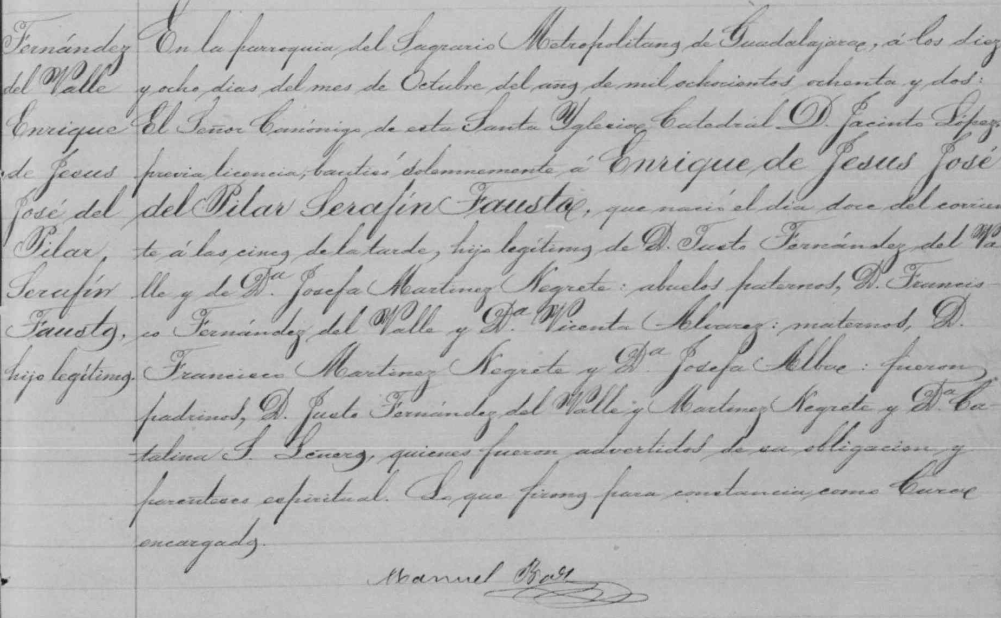 Fernández
del Valle
Enrique
de Jesus
José del
Pilar,
Serafín
Fausto,
hijo legítimo.
En la parroquia del Sagrario Metropolitano de Guadalajara, á los diez
y ocho dias del mes de Octubre del año de mil ochocientos ochenta y dos:
El Señor Canónigo de esta Santa Yglesia Catedral D. Jacinto López,
previa licencia, bautisó solemnemente á Enrique de Jesus José
del Pilar Serafín Fausto, que nació el dia doce del corrien
te á las cinco de la tarde, hijo legítimo de D. Justo Fernández del Va
lle y de Dª. Josefa Martinez Negrete: abuelos paternos, D. Francis-
co Fernández del Valle y Dª. Vicenta Alvarez: maternos, D.
Francisco Martinez Negrete y Dª. Josefa Alba: fueron
padrinos, D. Justo Fernández del Valle y Martinez Negrete y Dª. Ca-
talina S. Lenero, quienes fueron advertidos de su obligacion y
parentesco espiritual. Lo que firmo para constancia como Cura
encargado.
Manuel